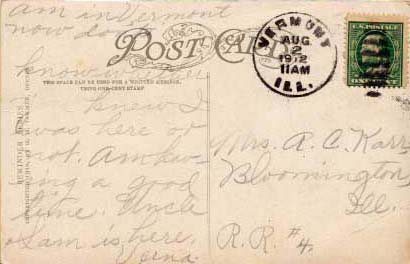 am in Vermont
now do
know
knew I
was here or
not. Am hav-
ing a good
time. Uncle
Sam is here.
Verna
POST CARD
THIS SPACE CAN BE USED FOR A WRITTEN MESSAGE,
USING ONE-CENT STAMP
REMINDER SERIES
VERMONT
AUG
2
1912
11AM
ILL.
U.S. POSTAGE
Mrs. A. C. Karr
Bloomington
Ill.
R.R. #4.